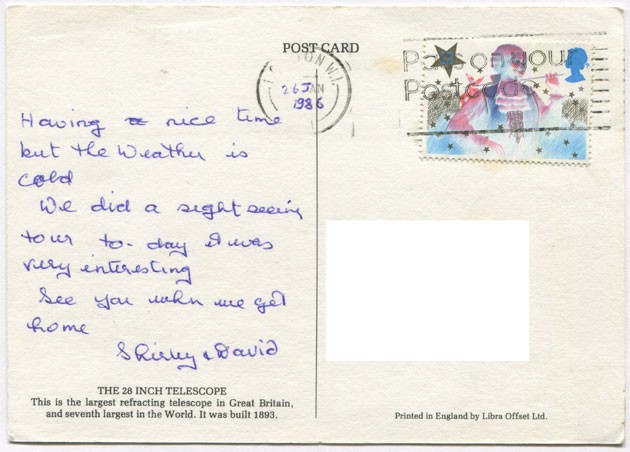 POST CARD
LONDON W.1.
26 JAN
1986
Pass on your
Postcode
Having a nice time
but the Weather is
cold
We did a sight seeing
tour to-day it was
very interesting
See you when we get
home
Shirley & David
THE 28 INCH TELESCOPE
This is the largest refracting telescope in Great Britain,
and seventh largest in the World. It was built 1893.
Printed in England by Libra Offset Ltd.